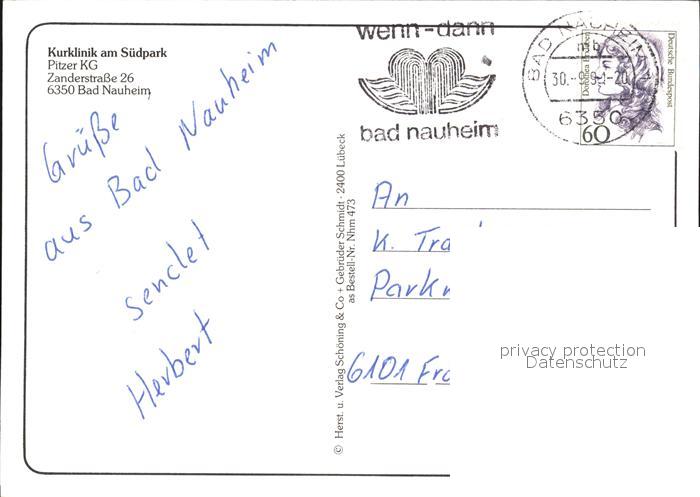 Kurklinik am Südpark
Pitzer KG
Zanderstraße 26
6350 Bad Nauheim
Grüße
aus Bad Nauheim
sendet
Herbert
© Herst. u. Verlag Schöning & Co + Gebrüder Schmidt · 2400 Lübeck
as Bestell-Nr. Nhm 473
wenn - dann
bad nauheim
BAD NAUHEIM
mb
6350
Deutsche Bundespost
60
An
K. Tra
Park
6101 Fra
privacy protection
Datenschutz